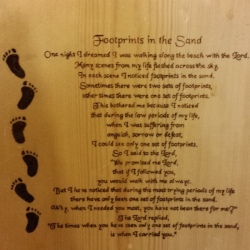 Footprints in the Sand
One night I dreamed I was walking along the beach with the Lord.
Many scenes from my life flashed across the sky.
In each scene I noticed footprints in the sand.
Sometimes there were two sets of footprints,
other times there were one set of footprints.
This bothered me because I noticed
that during the low periods of my life,
when I was suffering from
anguish, sorrow or defeat,
I could see only one set of footprints.
So I said to the Lord,
"You promised me Lord,
that if I followed you,
you would walk with me always.
But I have noticed that during the most trying periods of my life
there have only been one set of footprints in the sand.
Why, when I needed you most, you have not been there for me?"
The Lord replied,
"The times when you have seen only one set of footprints in the sand,
is when I carried you."